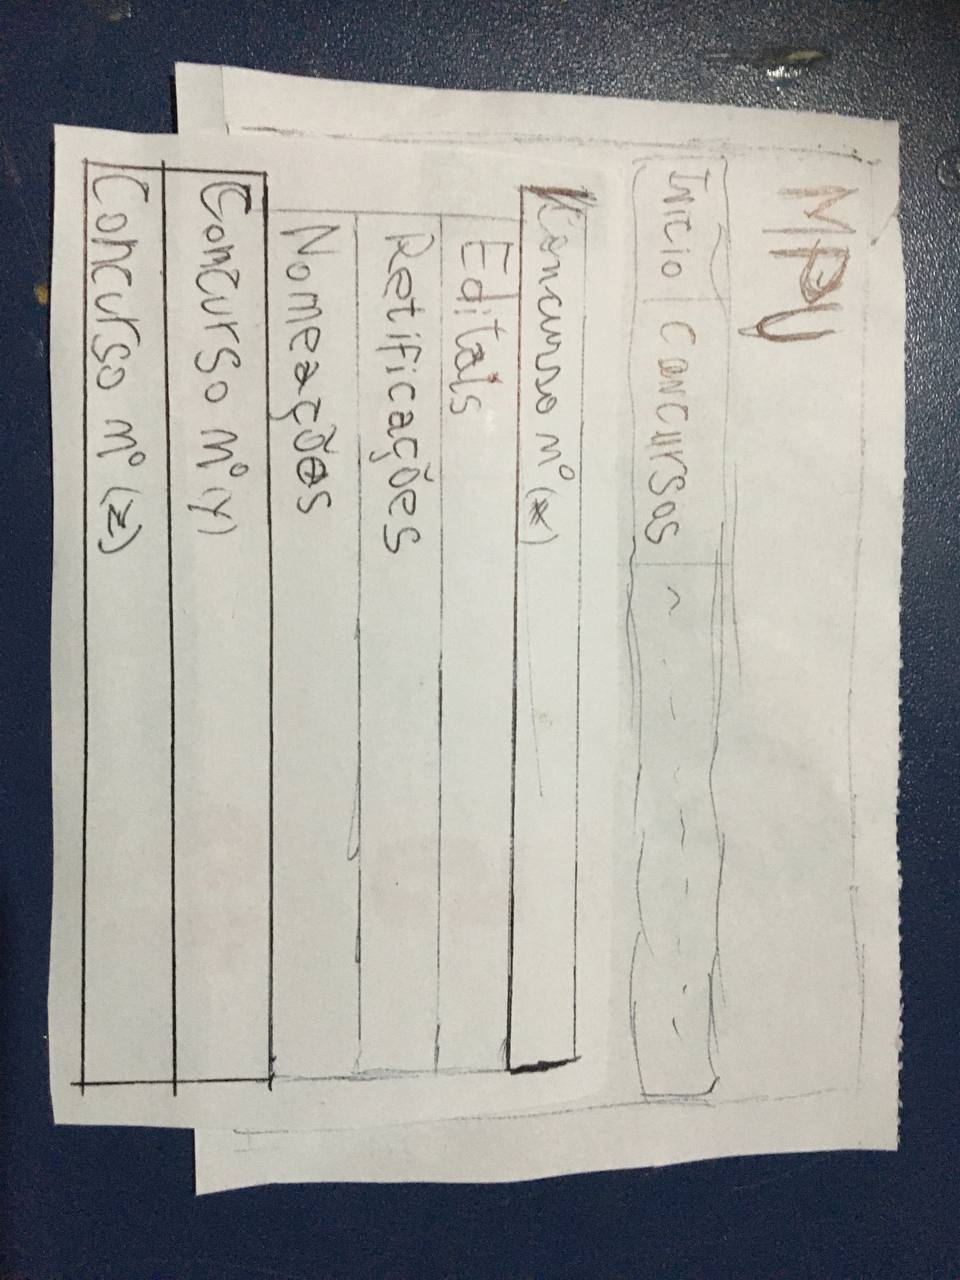 MPU
Inicio Concursos
Concurso nº (x)
Editais
Retificações
Nomeações
Concurso nº (y)
Concurso nº (z)